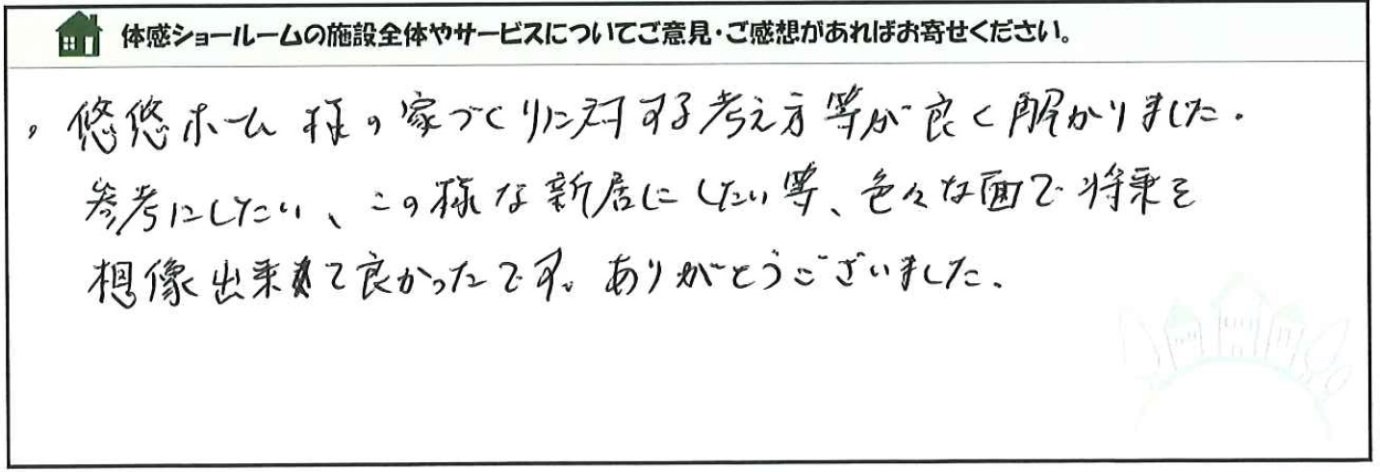 体感ショールームの施設全体やサービスについてご意見・ご感想があればお寄せください。
・悠悠ホーム様の家づくりに対する考え方等が良く解かりました.
参考にしたい、この様な新居にしたい等、色々な面で将来を
想像出来て良かったです。ありがとうございました.